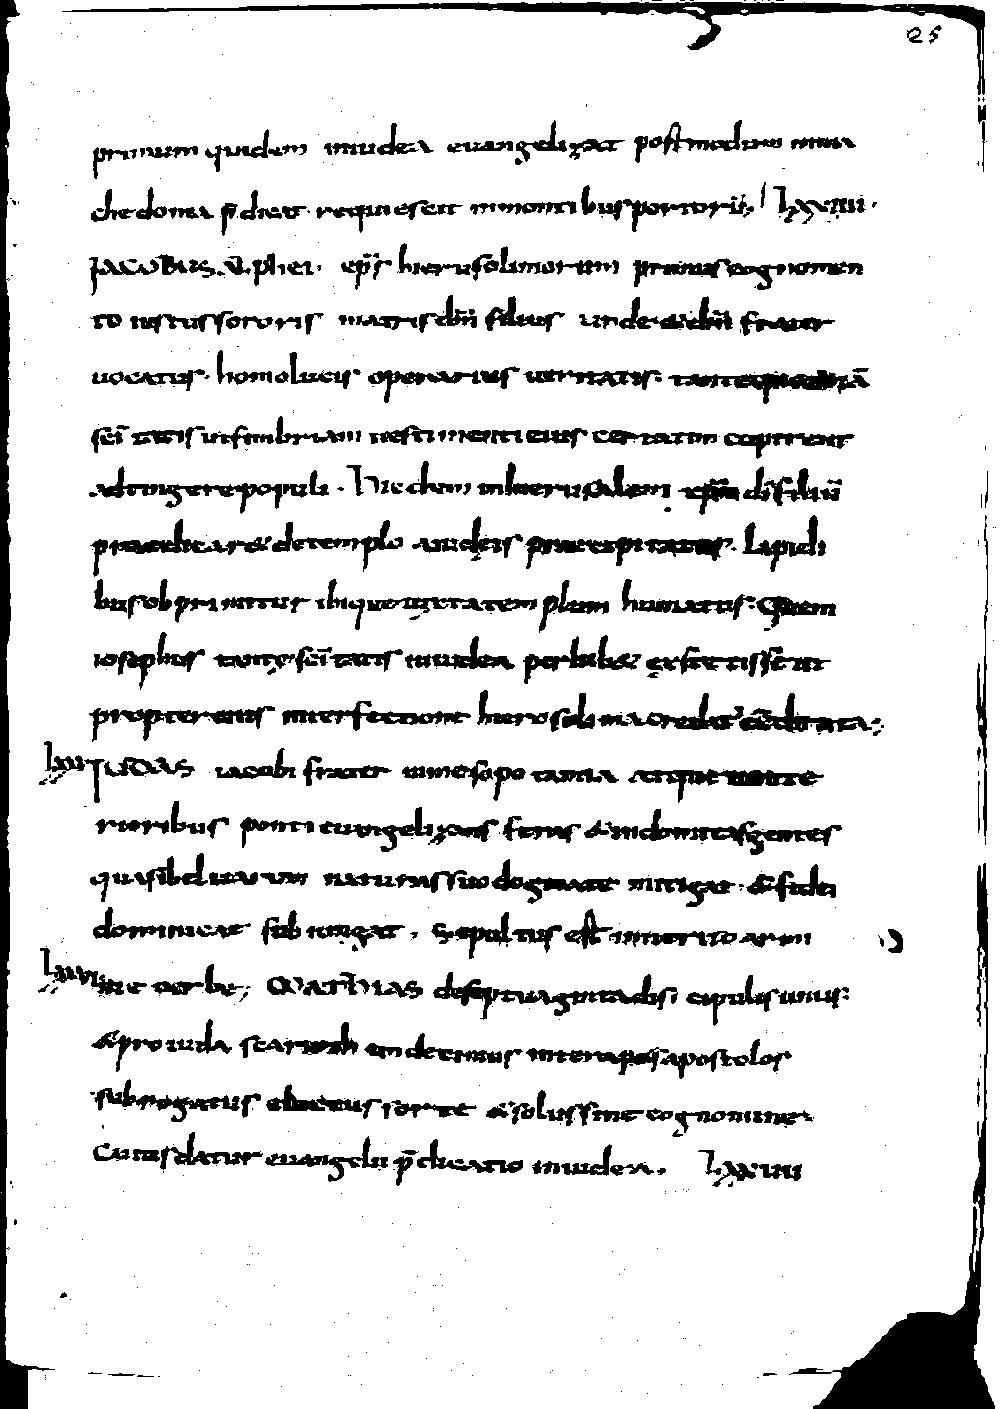 25
primum quidem iniudea euangelizat postmodum inma
chedonia p̄dicat requiescit inmontibus portorū; lxxiiii.
JACOBUS alphei. ep̄s hierusolimorum primus cognomen
to iustus sororis matris dn̄i filius unde & dn̄i frater
uocatus. homo lucis operarius ueritatis. tante
sc̄itatis ut fimbriam uestimenti eius certatim cuperent
adtingere populi. Hic dem inhierusalem dī filiū
praedicar& detemplo a iudeis praecipitatus. lapidi
bus obprimitur ibique iuxta templum humatus. Quem
iosephus tante sc̄itatis iniudea perhib& extetisse ut
propter eius interfectione hierosolima credat
lxxv JUDAS iacobi frater inmesopotamia atque inte
rioribus ponti euangelizans feras & indomitas gentes
quasi beluarum naturas suo dogmate mitigat. & fidei
dominicae subiungat. Sepultus est inmerito armi
lxxvi niae urbe; MATHIAS deseptuaginta discipulis unus.
& pro iuda scarioth duodecimus inter apostolos
subrogatus electus sorte & solus sine cognomine.
Cui datur euangelii p̄dicatio iniudea. lxxviii